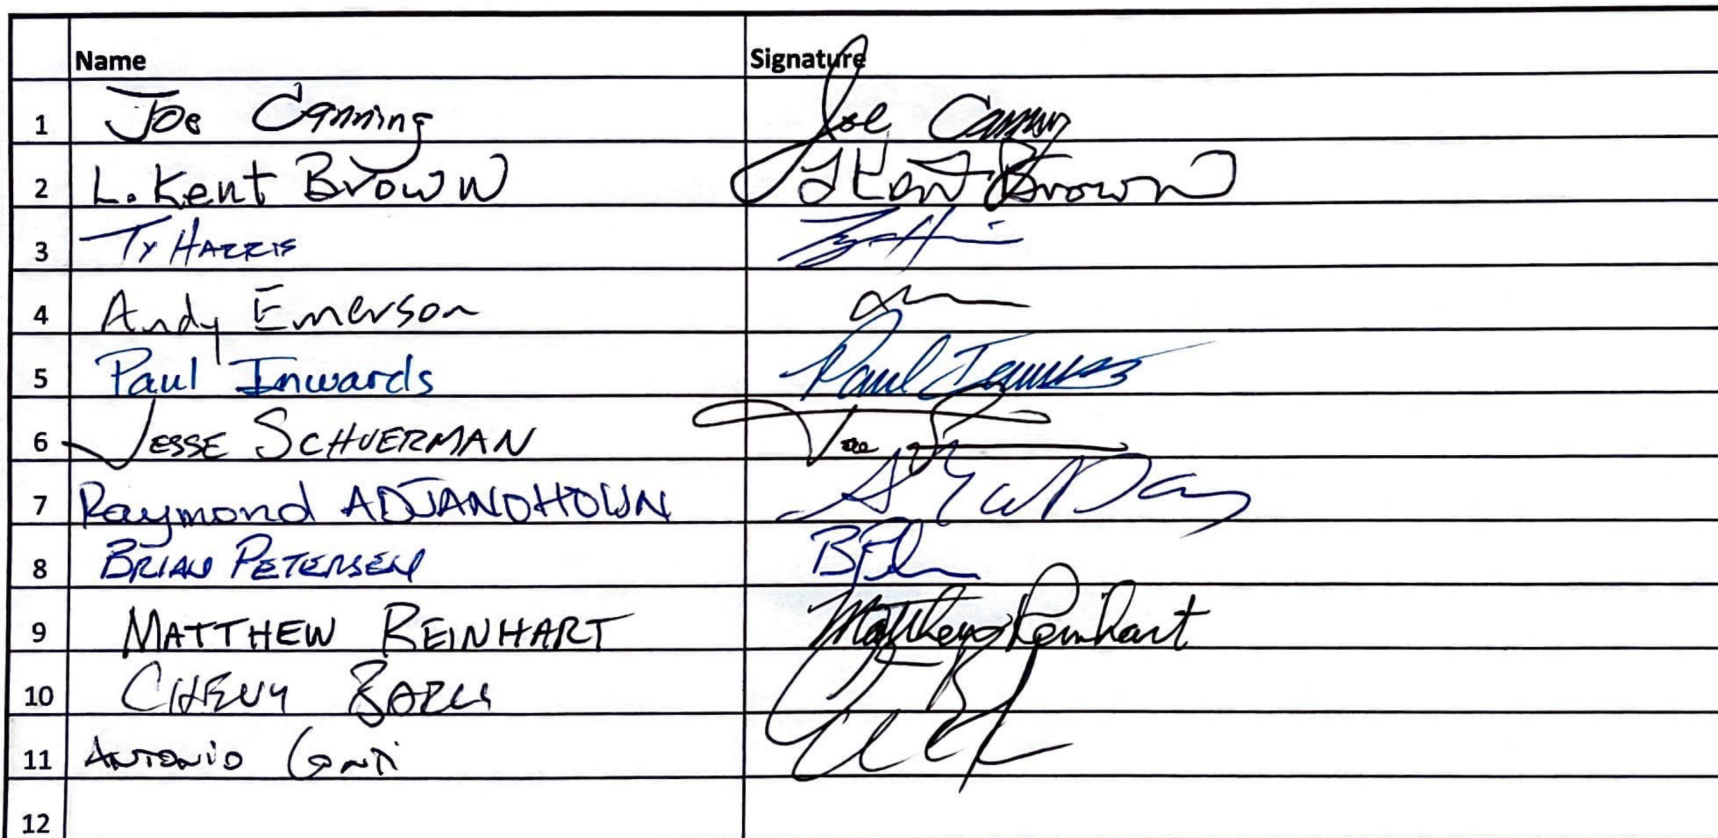 Name Signature
1 Joe Canning Joe Canning
2 L. Kent Brown L Kent Brown
3 Ty Harris
4 Andy Emerson
5 Paul Inwards Paul Inwards
6 Jesse Schuerman
7 Raymond ADJANOHOUN
8 Brian Petersen
9 Matthew Reinhart Matthew Reinhart
10 Chevy
11 Antonio Conti
12